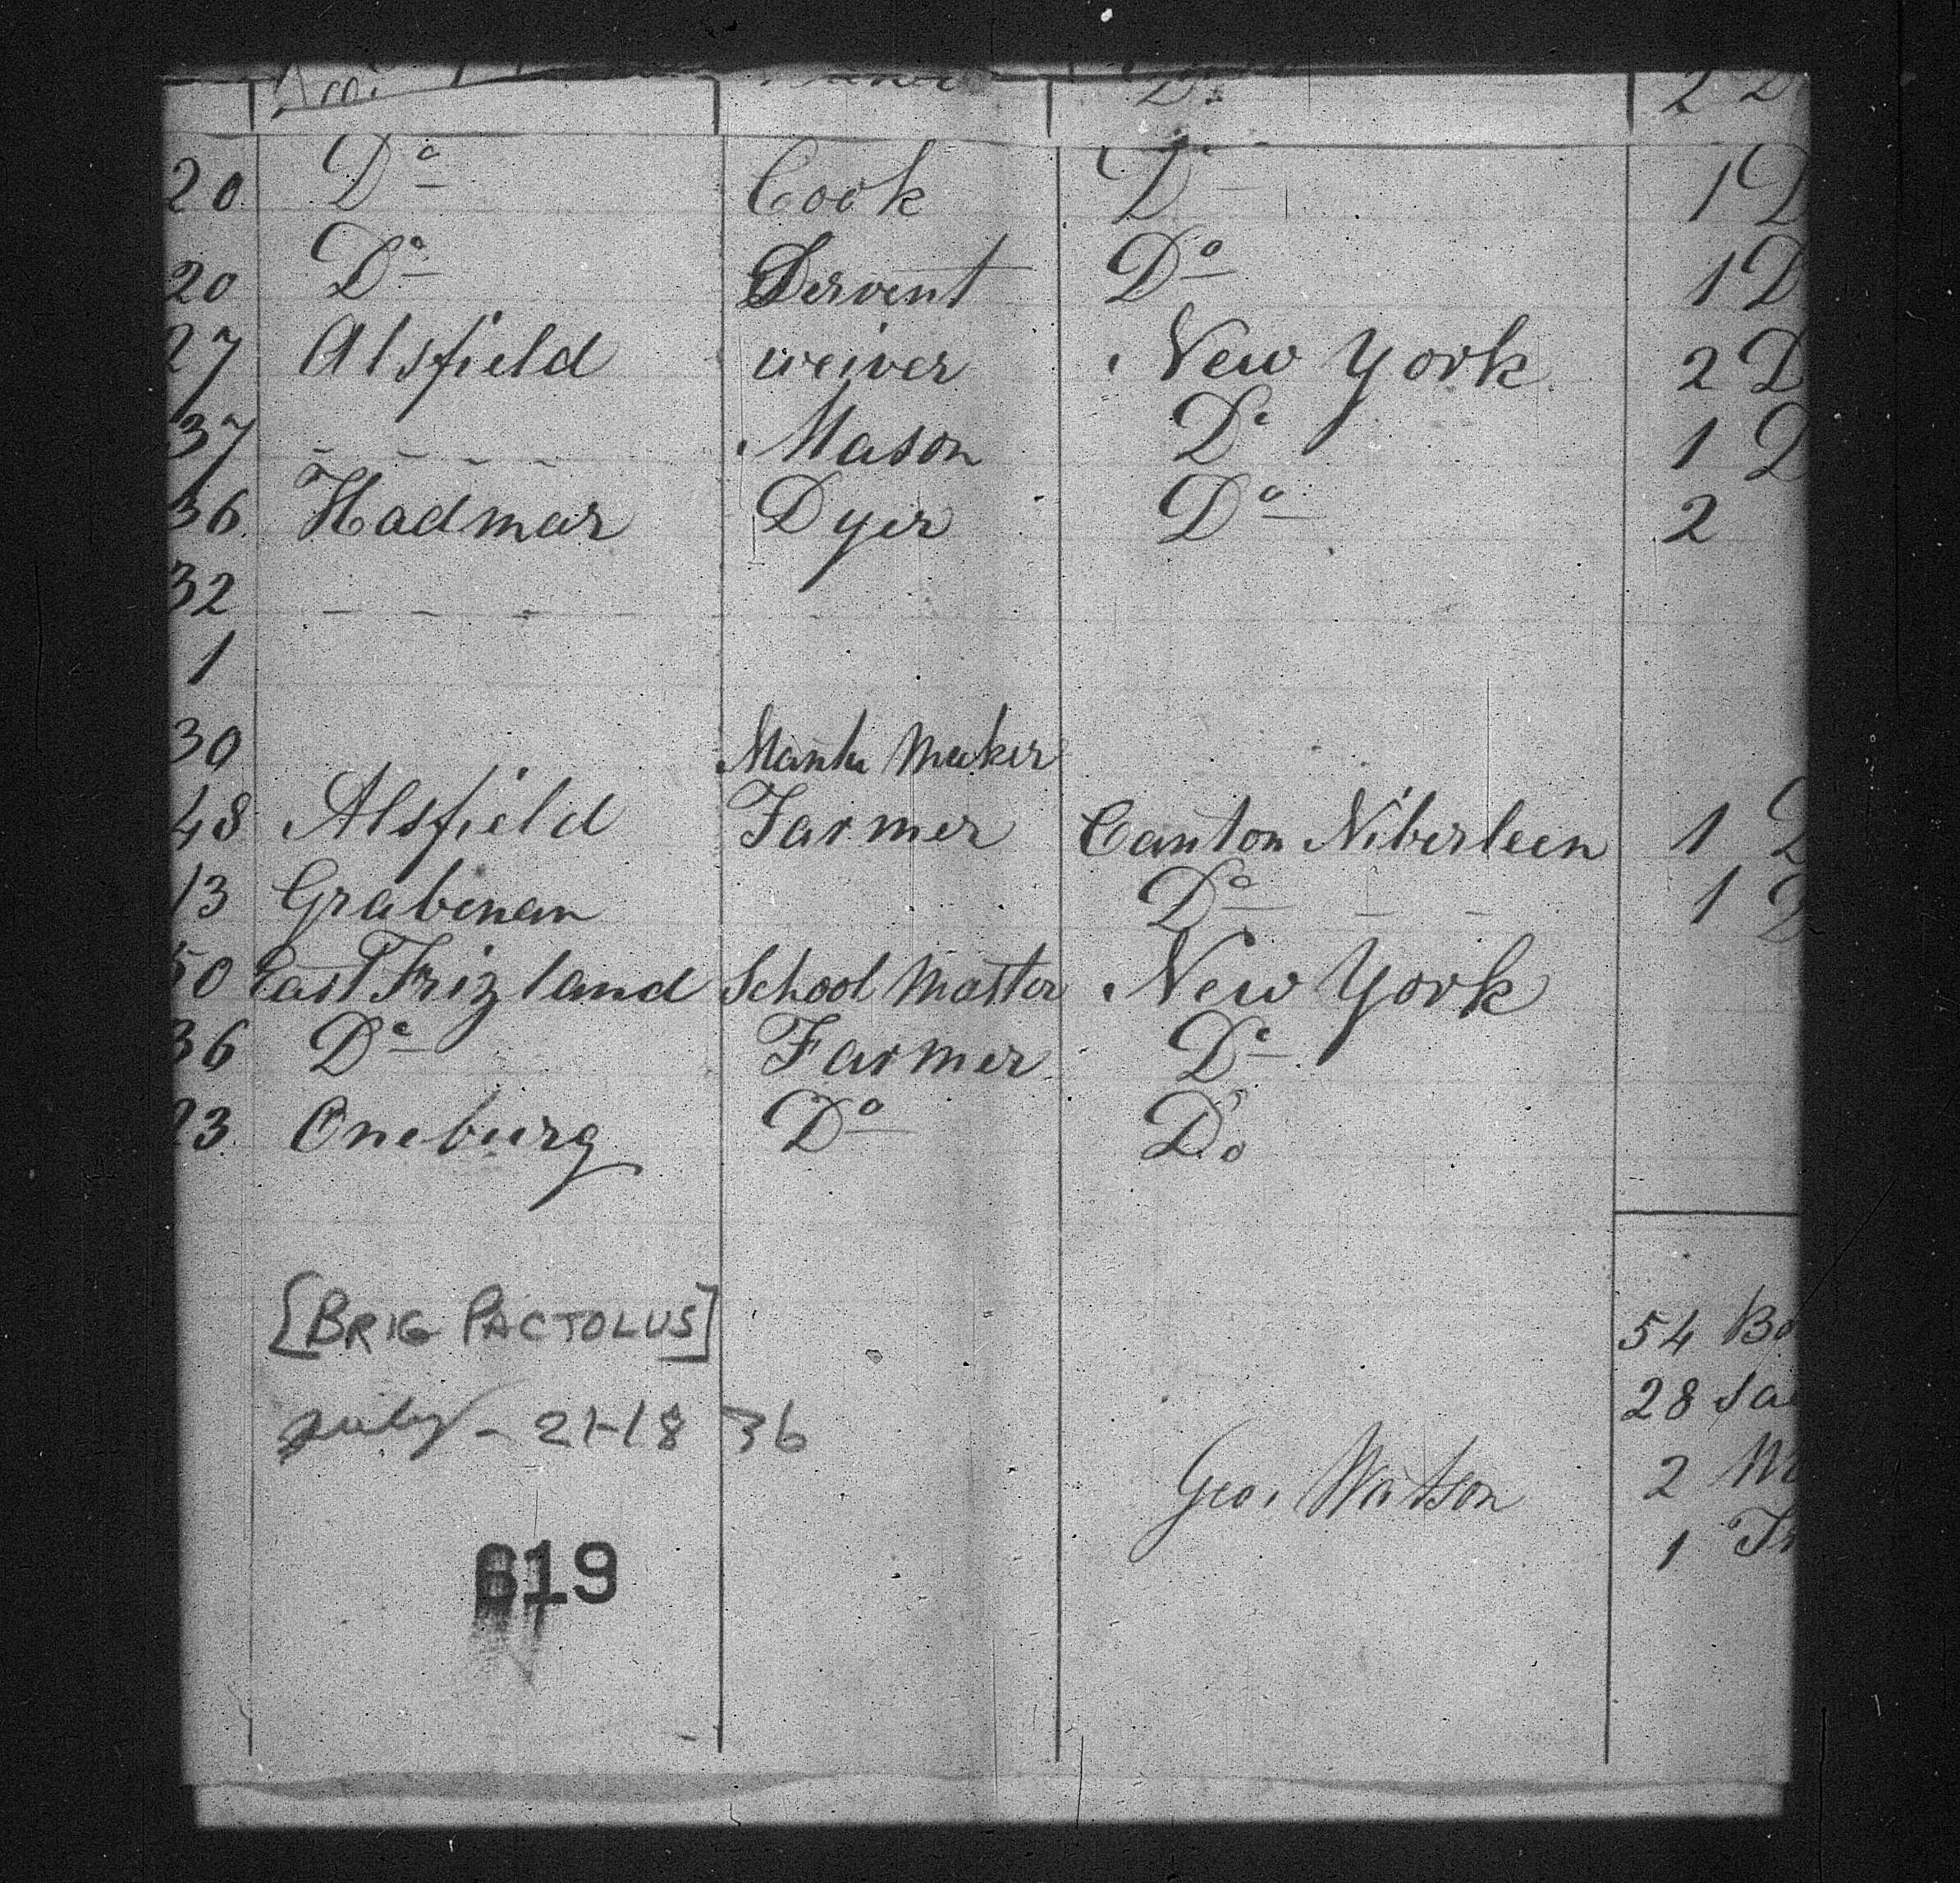 Do 2 D
20 Do Cook Do 1 D
20 Do Servent Do 1 D
27 Alsfield weiver New York 2 D
37 - - - - Mason Do 1 D
36 Hadmar Dyer Do 2
32 - - - -
1
30 Mantu Meeker
48 Alsfield Farmer Canton Niberleen 1 D
13 Grabenau Do - - 1 D
50 East Frizland School Master New York
36 Do Farmer Do
23 Oneburg Do Do
[BRIG PACTOLUS]
July - 21-1836
54 Bo
28 Sa
Geo. Watson
2
1
619